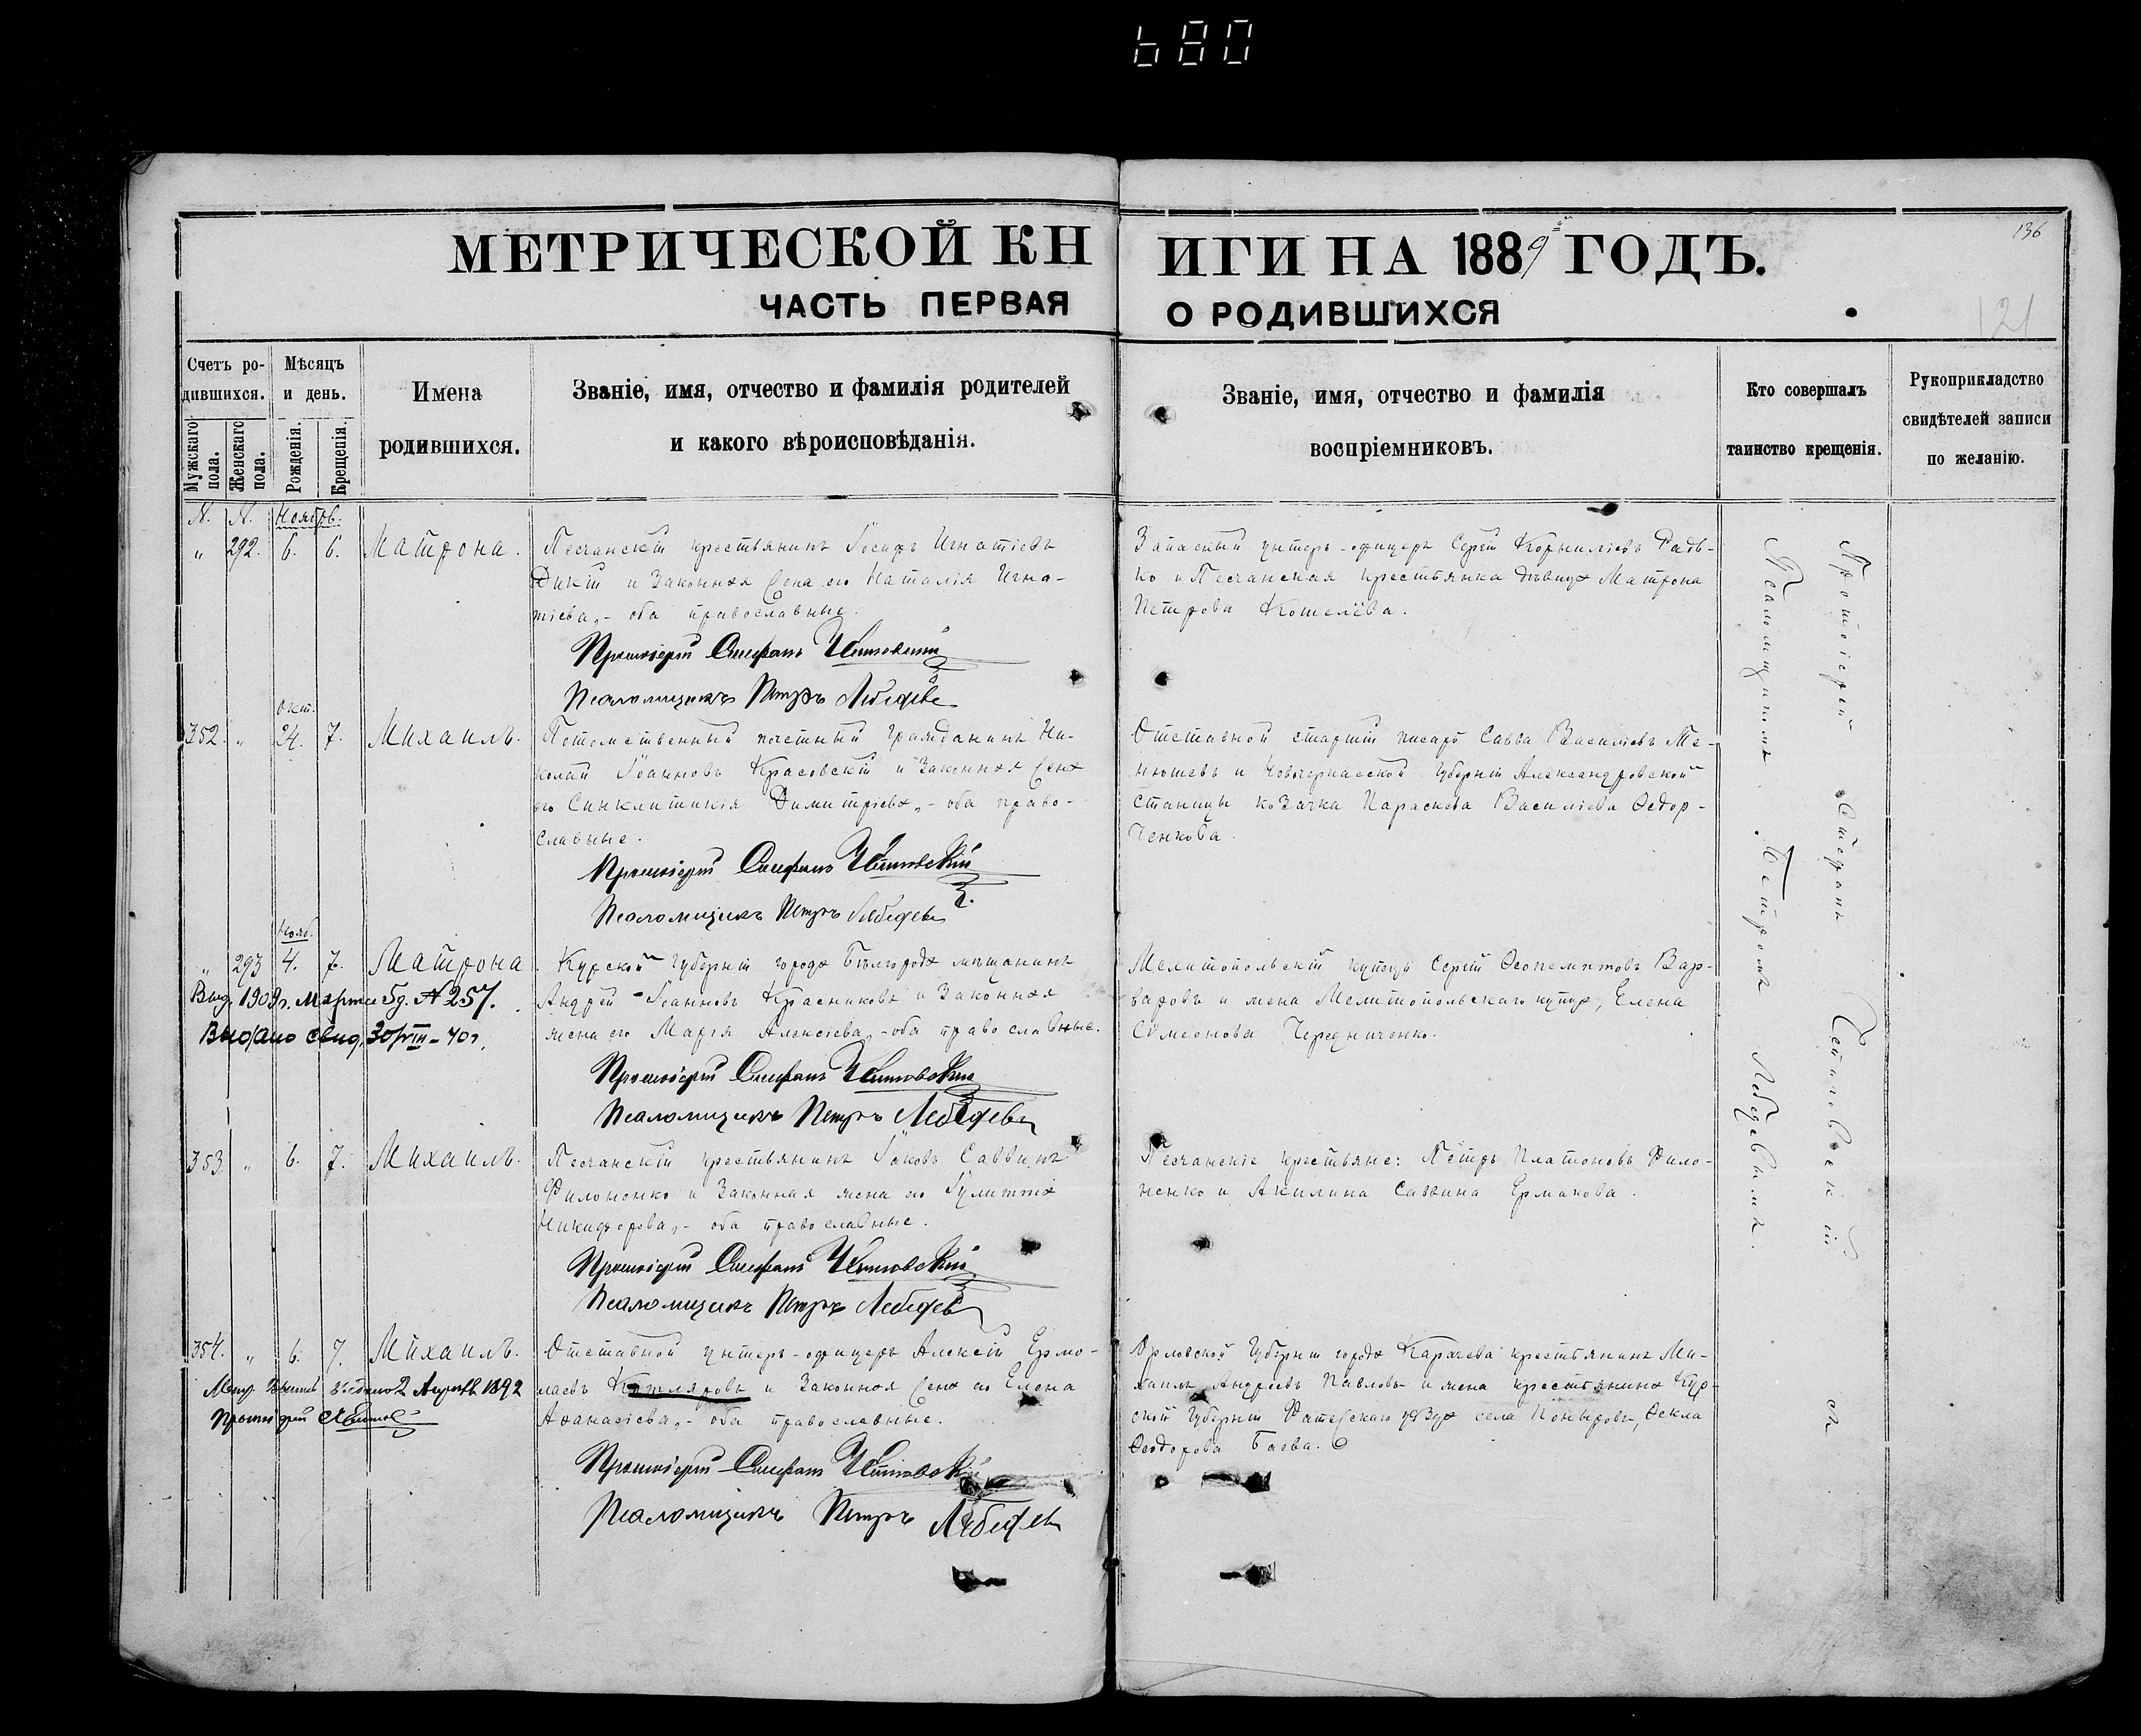 680
МЕТРИЧЕСКОЙ КНИГИ НА 1889й ГОДЪ.
136
ЧАСТЬ ПЕРВАЯ О РОДИВШИХСЯ
121
Счетъ родившихся.
Мужскаго пола.
Женскаго пола.
Мѣсяцъ и день.
Рожденія.
Крещенія.
Имена родившихся.
Званіе, имя, отчество и фамилія родителей
и какого вѣроисповѣданія.
Званіе, имя, отчество и фамилія
воспріемниковъ.
Кто совершалъ
таинство крещенія.
Рукоприкладство
свидѣтелей записи
по желанію.
N. N. Ноябр.
" 292. 6. 6. Матрона.
Песчанскій крестьянинъ Іосифъ Игнатіевъ
Дикій и законная жена его Наталія Игна-
тіева,- оба православные.
Протоіерей Стефанъ
Псаломщикъ Петръ Лебедевъ
Запасный унтеръ-офицеръ Сергій Корниліевъ Радь-
ко и Песчанская крестьянка дѣвица Матрона
Петрова Кошелёва.
Окт.
352. " 24. 7. Михаилъ.
Потомственный почетный гражданинъ Ни-
колай Іоанновъ Красовскій и законная жена
его Синклитикія Димитріева,- оба право-
славные.
Протоіерей Стефанъ
Псаломщикъ Петръ Лебедевъ
Отставной старшій писарь Савва Василіевъ
и Новочеркасской губерніи Александровской
станицы козачка Параскева Василіева Ѳедор-
ченкова.
Нояб.
" 293 4. 7. Матрона.
Выд. 1909г. Марта 5д. N 257.
Выдано свид. 30/VIII-40г.
Курской губерніи города Бѣлгорода мѣщанинъ
Андрей Іоанновъ Красниковъ и законная
жена его Марія Алексіева,- оба православные.
Протоіерей Стефанъ
Псаломщикъ Петръ Лебедевъ
Мелитопольскій купецъ Сергій Ѳеопемптовъ Вар-
варовъ и жена Мелитопольскаго купца, Елена
Симеонова Чередниченко.
353. " 6. 7. Михаилъ.
Песчанскій крестьянинъ Іаковъ Саввинъ
Филоненко и законная жена его Іулиттія
Никифорова,- оба православные.
Протоіерей Стефанъ
Псаломщикъ Петръ Лебедевъ
Песчанскіе крестьяне: Петръ Платоновъ Фило-
ненко и Акилина Саввина Ермакова.
354. " 6. 7. Михаилъ.
2 Апрѣля 1892
Протоіерей
Отставной унтеръ-офицеръ Алексій Ермо-
лаевъ Котляровъ и законная жена его Елена
Аѳанасіева,- оба православные.
Протоіерей Стефанъ
Псаломщикъ Петръ Лебедевъ
Орловской губерніи города Карачева крестьянинъ Ми-
хаилъ Андреевъ Павловъ и жена крестьянина Кур-
ской губерніи Фатежскаго уѣзда села Поныровъ, Ѳекла
Ѳеодорова Баева.
Протоіерей Стефанъ
съ
Псаломщикомъ Петромъ Лебедевымъ.